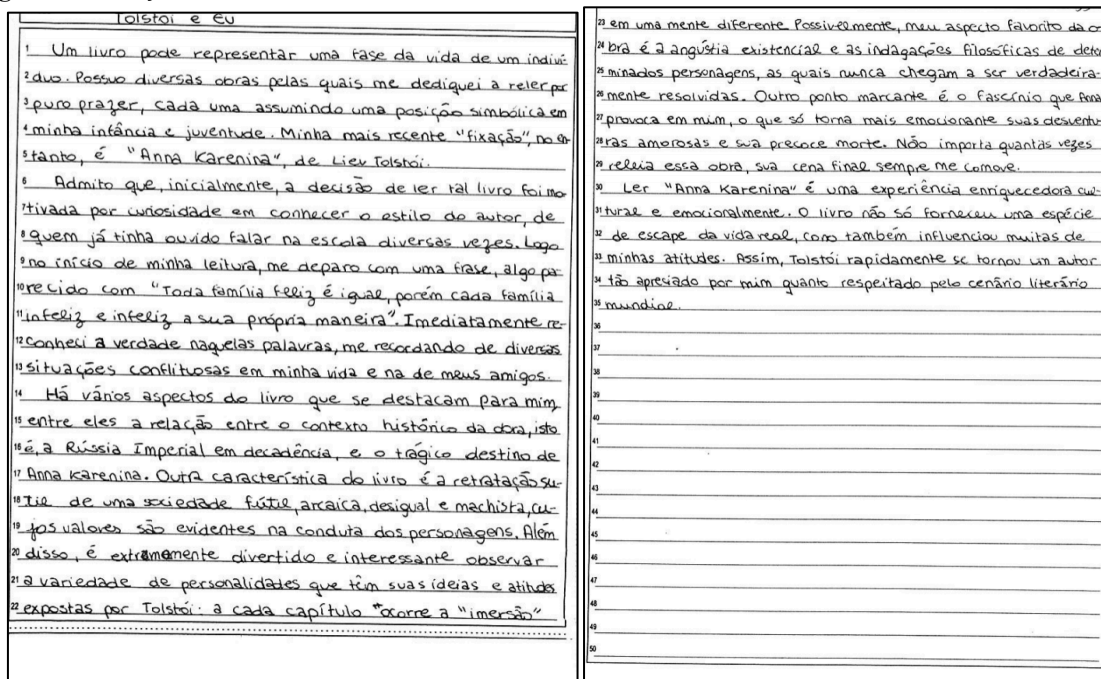 Tolstói e Eu
1 Um livro pode representar uma fase da vida de um indiví-
2 duo. Possuo diversas obras pelas quais me dediquei a reler por
3 puro prazer, cada uma assumindo uma posição simbólica em
4 minha infância e juventude. Minha mais recente "fixação", no en-
5 tanto, é "Anna Karenina", de Liev Tolstói.
6 Admito que, inicialmente, a decisão de ler tal livro foi mo-
7 tivada por curiosidade em conhecer o estilo do autor, de
8 quem já tinha ouvido falar na escola diversas vezes. Logo
9 no início de minha leitura, me deparo com uma frase, algo pa-
10 recido com "Toda família feliz é igual, porém cada família
11 infeliz e infeliz a sua própria maneira". Imediatamente re-
12 conheci a verdade naquelas palavras, me recordando de diversas
13 situações conflituosas em minha vida e na de meus amigos.
14 Há vários aspectos do livro que se destacam para mim,
15 entre eles a relação entre o contexto histórico da obra, isto
16 é, a Rússia Imperial em decadência, e o trágico destino de
17 Anna Karenina. Outra característica do livro é a retratação su-
18 til de uma sociedade fútil, arcaica, desigual e machista, cu-
19 jos valores são evidentes na conduta dos personagens. Além
20 disso, é extremamente divertido e interessante observar
21 a variedade de personalidades que têm suas ideias e atitudes
22 expostas por Tolstói: a cada capítulo ocorre a "imersão"
23 em uma mente diferente. Possivelmente, meu aspecto favorito da o-
24 bra é a angústia existencial e as indagações filosóficas de deter-
25 minados personagens, as quais nunca chegam a ser verdadeira-
26 mente resolvidas. Outro ponto marcante é o fascínio que Anna
27 provoca em mim, o que só torna mais emocionante suas desventu-
28 ras amorosas e sua precoce morte. Não importa quantas vezes
29 releia essa obra, sua cena final sempre me comove.
30 Ler "Anna Karenina" é uma experiência enriquecedora cul-
31 tural e emocionalmente. O livro não só forneceu uma espécie
32 de escape da vida real, como também influenciou muitas de
33 minhas atitudes. Assim, Tolstói rapidamente se tornou um autor
34 tão apresiado por mim quanto respeitado pelo cenário literário
35 mundial.
36
37
38
39
40
41
42
43
44
45
46
47
48
49
50